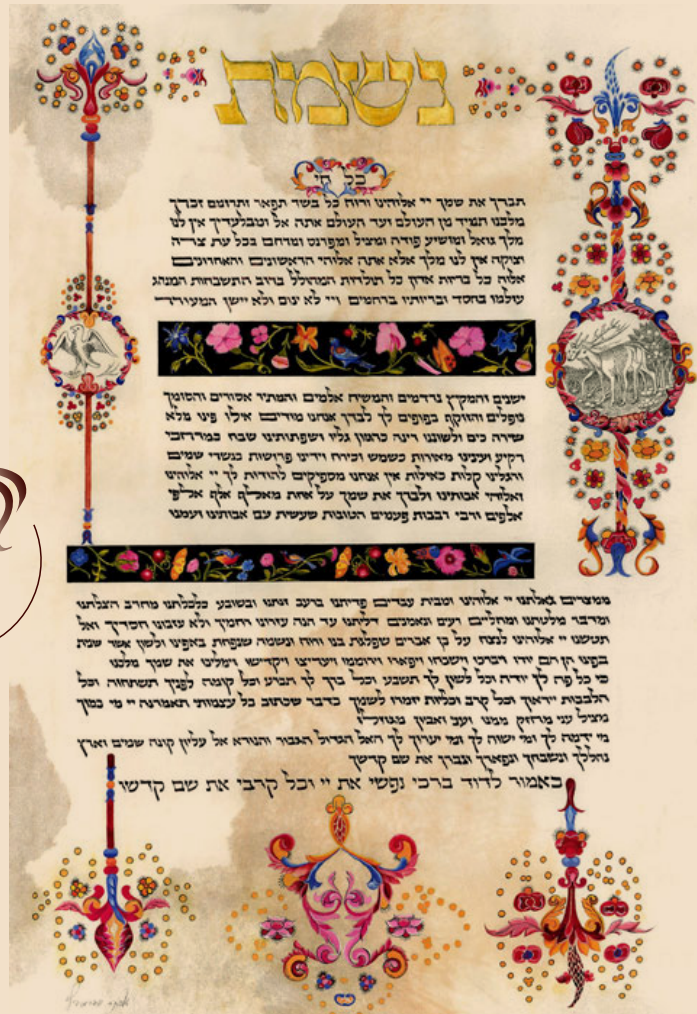 נשמת
כל חי
תברך את שמך יי אלוהינו ורוח כל בשר תפאר ותרומם זכרך
מלכנו תמיד מן העולם ועד העולם אתה אל ומבלעדיך אין לנו
מלך גואל ומושיע פודה ומציל ומפרנס ומרחם בכל עת צרה
וצוקה אין לנו מלך אלא אתה אלוהי הראשונים והאחרונים
אלוה כל בריות אדון כל תולדות המהולל ברוב התשבחות המנהג
עולמו בחסד ובריותיו ברחמים ויי לא ינום ולא יישן המעורר
ישנים והמקיץ נרדמים והמשיח אלמים והמתיר אסורים והסומך
נופלים והזוקף כפופים לך לבדך אנחנו מודים אילו פינו מלא
שירה כים ולשוננו רינה כהמון גליו ושפתותינו שבח כמרחבי
רקיע ועינינו מאירות כשמש וכירח וידינו פרושות כנשרי שמים
ורגלינו קלות כאילות אין אנחנו מספיקים להודות לך יי אלוהינו
ואלוהי אבותינו ולברך את שמך על אחת מאלף אלף אלפי
אלפים ורבי רבבות פעמים הטובות שעשית עם אבותינו ועמנו
ממצרים גאלתנו יי אלוהינו ומבית עבדים פדיתנו ברעב זנתנו ובשובע כלכלתנו מחרב הצלתנו
ומדבר מלטתנו ומחליים רעים ונאמנים דליתנו עד הנה עזרונו רחמיך ולא עזבונו חסדיך ואל
תטשנו יי אלוהינו לנצח על כן אברים שפלגת בנו ורוח ונשמה שנפחת באפינו ולשון אשר שמת
בפינו הן הם יודו ויברכו וישבחו ויפארו וירוממו ויעריצו ויקדישו וימליכו את שמך מלכנו
כי כל פה לך יודה וכל לשון לך תשבע וכל ברך לך תכרע וכל קומה לפניך תשתחוה וכל
הלבבות ייראוך וכל קרב וכליות יזמרו לשמך כדבר שכתוב כל עצמותי תאמרנה יי מי כמוך
מציל עני מחזק ממנו ועני ואביון מגוזלו
מי ידמה לך ומי ישוה לך ומי יערוך לך האל הגדול הגבור והנורא אל עליון קונה שמים וארץ
נהללך ונשבחך ונפארך ונברך את שם קדשך
כאמור לדוד ברכי נפשי את יי וכל קרבי את שם קדשו